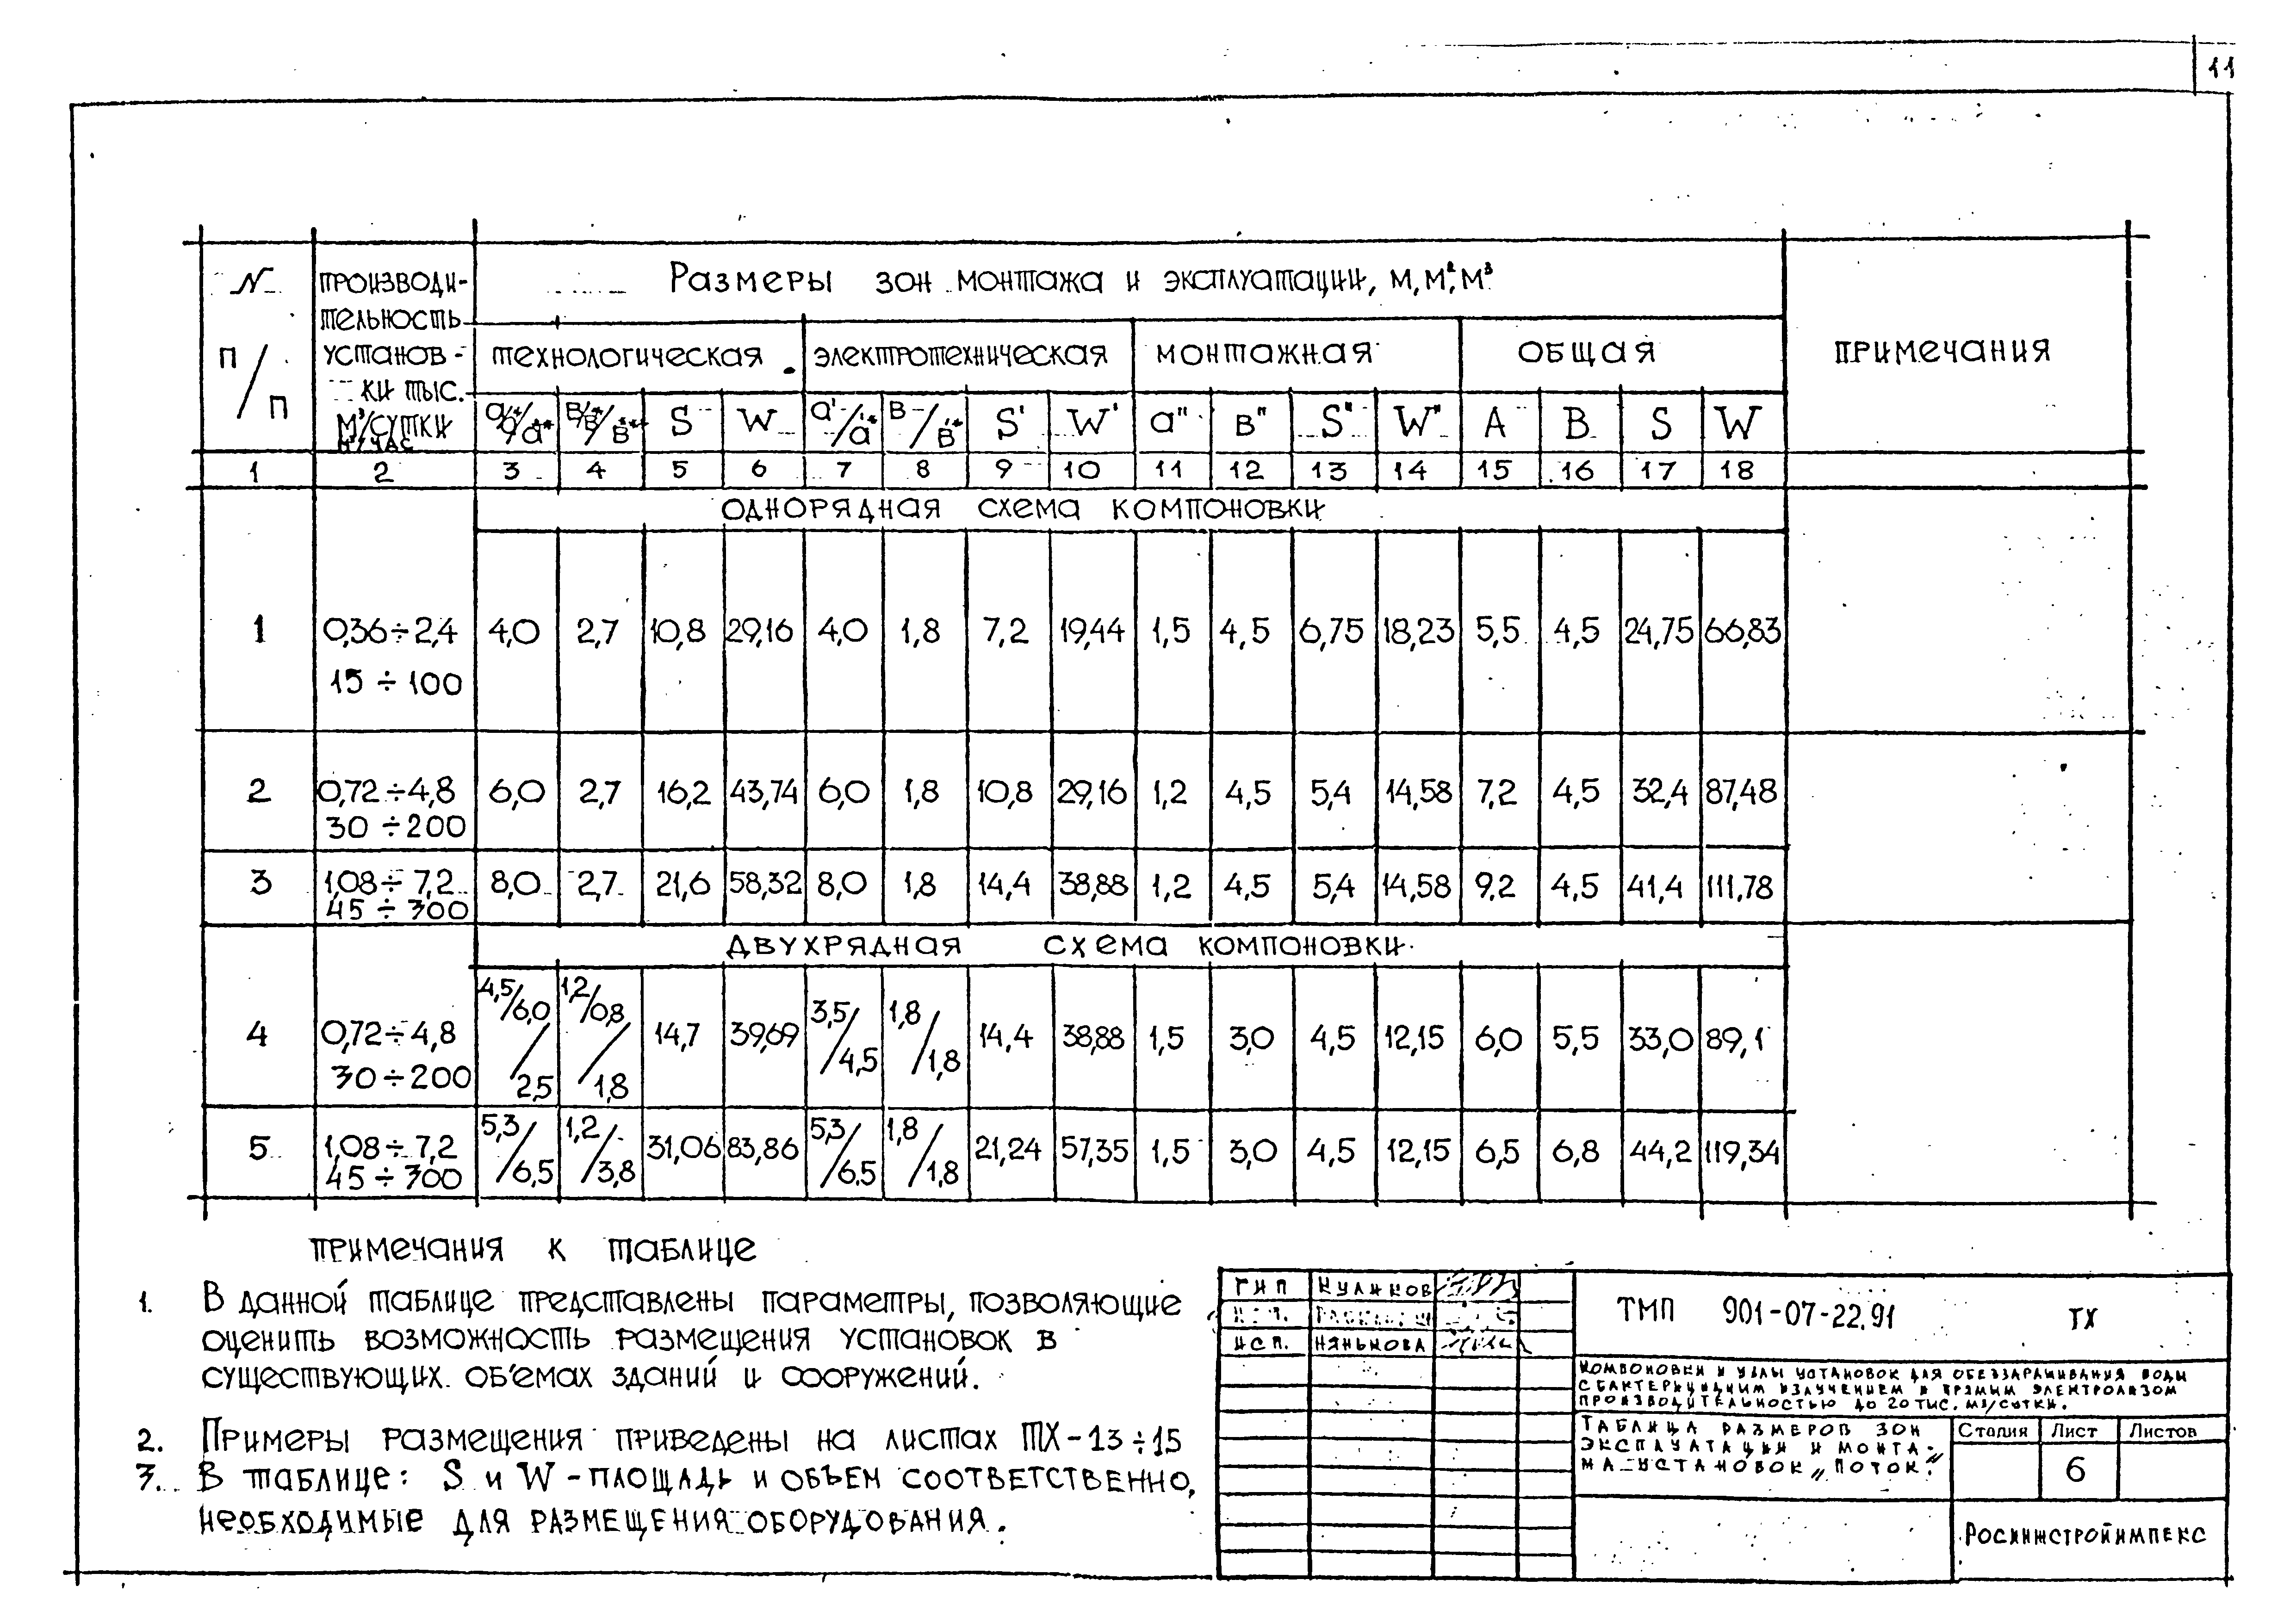 11
N п/п
ПРОИЗВОДИ-
ТЕЛЬНОСТЬ
УСТАНОВ-
КИ ТЫС.
М³/СУТКИ
М³/ЧАС
Размеры зон монтажа и эксплуатации, м, м², м³
ПРИМЕЧАНИЯ
технологическая электротехническая монтажная общая
S W S' W' a" в" S" W" A B S W
1 2 3 4 5 6 7 8 9 10 11 12 13 14 15 16 17 18
ОДНОРЯДНАЯ СХЕМА КОМПОНОВКИ
1 0,36÷2,4 4,0 2,7 10,8 29,16 4,0 1,8 7,2 19,44 1,5 4,5 6,75 18,23 5,5 4,5 24,75 66,83
15÷100
2 0,72÷4,8 6,0 2,7 16,2 43,74 6,0 1,8 10,8 29,16 1,2 4,5 5,4 14,58 7,2 4,5 32,4 87,48
30÷200
3 1,08÷7,2 8,0 2,7 21,6 58,32 8,0 1,8 14,4 38,88 1,2 4,5 5,4 14,58 9,2 4,5 41,4 111,78
45÷300
ДВУХРЯДНАЯ СХЕМА КОМПОНОВКИ
4 0,72÷4,8 4,5/6,0/2,5 1,2/0,8/1,8 14,7 39,69 3,5/4,5 1,8/1,8 14,4 38,88 1,5 3,0 4,5 12,15 6,0 5,5 33,0 89,1
30÷200
5 1,08÷7,2 5,3/6,5 1,2/3,8 31,06 83,86 5,3/6,5 1,8/1,8 21,24 57,35 1,5 3,0 4,5 12,15 6,5 6,8 44,2 119,34
45÷300
ПРИМЕЧАНИЯ К ТАБЛИЦЕ
1. В ДАННОЙ ТАБЛИЦЕ ПРЕДСТАВЛЕНЫ ПАРАМЕТРЫ, ПОЗВОЛЯЮЩИЕ
ОЦЕНИТЬ ВОЗМОЖНОСТЬ РАЗМЕЩЕНИЯ УСТАНОВОК В
СУЩЕСТВУЮЩИХ ОБ'ЕМАХ ЗДАНИЙ И СООРУЖЕНИЙ.
2. ПРИМЕРЫ РАЗМЕЩЕНИЯ ПРИВЕДЕНЫ НА ЛИСТАХ ТХ-13÷15
3. В ТАБЛИЦЕ: S и W - ПЛОЩАДЬ И ОБЪЕМ СООТВЕТСТВЕННО,
НЕОБХОДИМЫЕ ДЛЯ РАЗМЕЩЕНИЯ ОБОРУДОВАНИЯ.
ГИП КУЛИКОВ
ИСП. НЯНЬКОВА
ТМП 901-07-22.91 ТХ
КОМПОНОВКИ И УЗЛЫ УСТАНОВОК ДЛЯ ОБЕЗЗАРАЖИВАНИЯ ВОДЫ
С БАКТЕРИЦИДНЫМ ИЗЛУЧЕНИЕМ И ПРЯМЫМ ЭЛЕКТРОЛИЗОМ
ПРОИЗВОДИТЕЛЬНОСТЬЮ ДО 20 ТЫС. М3/СУТКИ.
ТАБЛИЦА РАЗМЕРОВ ЗОН
ЭКСПЛУАТАЦИИ И МОНТА-
ЖА УСТАНОВОК „ПОТОК"
Стадия Лист Листов
6
РОСИНЖСТРОЙИМПЕКС